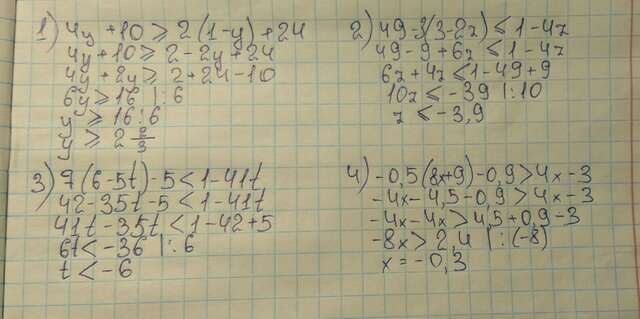 1) 4y + 10 ⩾ 2(1-y) + 24
4y + 10 ⩾ 2 - 2y + 24
4y + 2y ⩾ 2 + 24 - 10
6y ⩾ 16 |: 6
y ⩾ 16 : 6
y ⩾ 2 2/3
2) 49 - 3(3-2z) ⩽ 1 - 4z
49 - 9 + 6z ⩽ 1 - 4z
6z + 4z ⩽ 1 - 49 + 9
10z ⩽ -39 |: 10
z ⩽ -3,9
3) 7(6-5t) - 5 < 1 - 41t
42 - 35t - 5 < 1 - 41t
41t - 35t < 1 - 42 + 5
6t < -36 |: 6
t < -6
4) -0,5(8x+9) - 0,9 > 4x - 3
-4x - 4,5 - 0,9 > 4x - 3
-4x - 4x > 4,5 + 0,9 - 3
-8x > 2,4 |: (-8)
x = -0,3